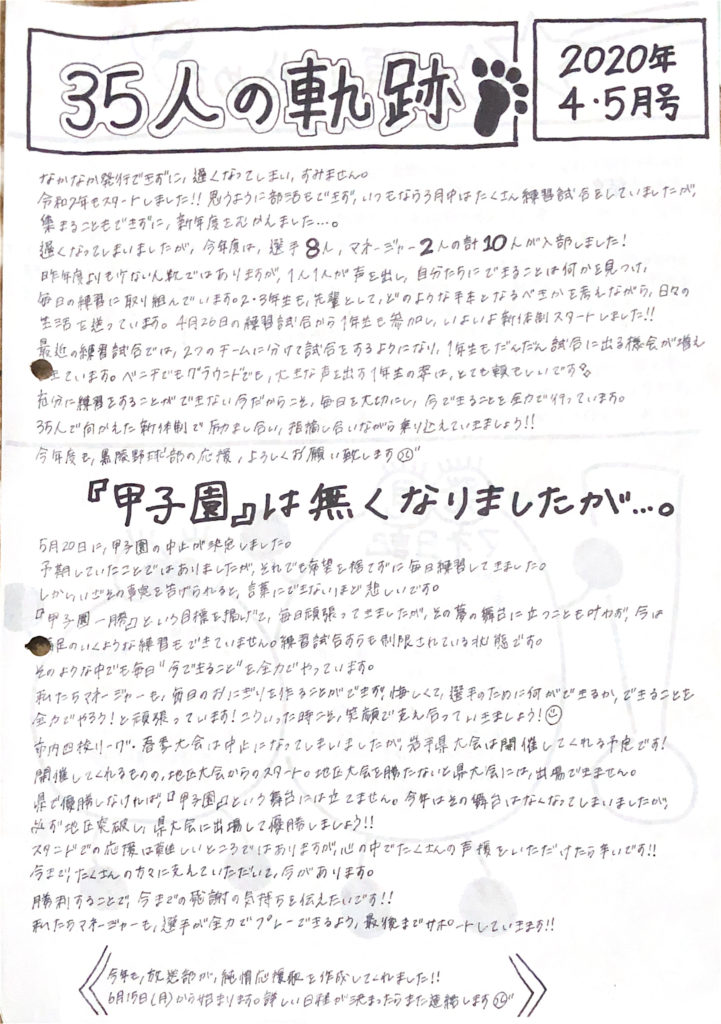 35人の軌跡
2020年
4・5月号
なかなか発行できずに、遅くなってしまい、すみません。
令和2年もスタートしました!! 思うように部活もできず、いつもなら3月中はたくさん練習試合をしていましたが、
集まることもできずに、新年度をむかえました…。
遅くなってしまいましたが、今年度は、選手8人、マネージャー2人の計10人が入部しました!
昨年度よりも少ない人数ではありますが、1人1人が声を出し、自分たちにできることは何かを見つけ、
毎日の練習に取り組んでいます。2・3年生も、先輩として、どのような手本となるべきかを考えながら、日々の
生活を送っています。4月26日の練習試合から1年生も参加し、いよいよ新体制スタートしました!!
最近の練習試合では、2つのチームに分けて試合をするようになり、1年生もだんだん試合に出る機会が増え
ています。ベンチでもグラウンドでも、大きな声を出す1年生の姿は、とても頼もしいです。
充分に練習をすることができない今だからこそ、毎日を大切にし、今できることを全力で行っています。
35人で向かえた新体制で励まし合い、指摘し合いながら乗り越えていきましょう!!
今年度も、黒陵野球部の応援、よろしくお願い致します
『甲子園』は無くなりましたが…。
5月20日に、甲子園の中止が決定しました。
予期していたことではありましたが、それでも希望を捨てずに毎日練習してきました。
しかし、いざその事実を告げられると、言葉にできないほど悲しいです。
『甲子園一勝』という目標を掲げて、毎日頑張ってきましたが、その夢の舞台に立つことも叶わず、今は
足のいくような練習もできていません。練習試合すらも制限されている状態です。
そのような中でも毎日"今できること"を全力でやっています。
私たちマネージャーも、毎日のおにぎりを作ることができず悔しくて、選手のために何ができるか、できることを
全力でやろう!と頑張っています!こういった時こそ、笑顔で支え合っていきましょう!
市内四校リーグ・春季大会は中止になってしまいましたが、岩手県大会は開催してくれる予定です!
開催してくれるものの、地区大会からのスタート。地区大会を勝たないと県大会には、出場できません。
県で優勝しなければ、『甲子園』という舞台には立てません。今年はその舞台はなくなってしまいましたが、
必ず地区突破し、県大会に出場して優勝しましょう!!
スタンドでの応援は難しいところではありますが、心の中でたくさんの声援をいただけたら幸いです!!
今まで、たくさんの方々に支えていただいて、今があります。
勝利することで、今までの感謝の気持ちを伝えたいです!!
私たちマネージャーも、選手が全力でプレーできるよう、最後までサポートしていきます!!
今年も、放送部が、純情応援歌を作成してくれました!!
6月15日(月)から始まります。詳しい日程が決まったらまた連絡します